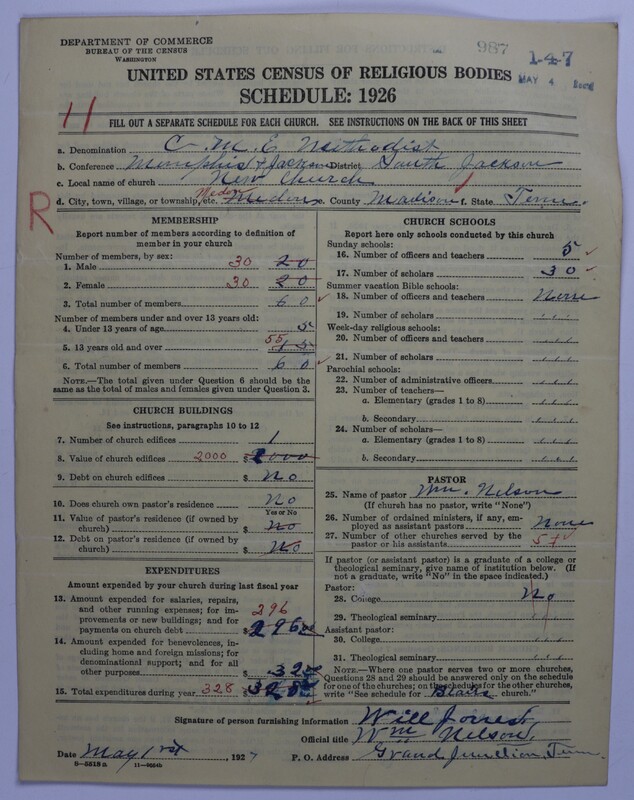 DEPARTMENT OF COMMERCE
BUREAU OF THE CENSUS
WASHINGTON
987
1-4-7
MAY 4
UNITED STATES CENSUS OF RELIGIOUS BODIES
SCHEDULE: 1926
11
FILL OUT A SEPARATE SCHEDULE FOR EACH CHURCH. SEE INSTRUCTIONS ON THE BACK OF THIS SHEET
a. Denomination C. M. E. Methodist
b. Conference Memphis & Jackson District South Jackson
c. Local name of church New Church
d. City, town, village, or township, etc. Medon e. County Madison f. State Tenn.
R
MEMBERSHIP
Report number of members according to definition of member in your church
Number of members, by sex:
1. Male 30 20
2. Female 30 20
3. Total number of members 60
Number of members under and over 13 years old:
4. Under 13 years of age 5
5. 13 years old and over 55 15
6. Total number of members 60
NOTE.—The total given under Question 6 should be the same as the total of males and females given under Question 3.
CHURCH BUILDINGS
See instructions, paragraphs 10 to 12
7. Number of church edifices 1
8. Value of church edifices 2000 $ 2000
9. Debt on church edifices $ No
10. Does church own pastor's residence No
Yes or No
11. Value of pastor's residence (if owned by church) $ No
12. Debt on pastor's residence (if owned by church) $ No
EXPENDITURES
Amount expended by your church during last fiscal year
13. Amount expended for salaries, repairs, and other running expenses; for improvements or new buildings; and for payments on church debt 296 $ 296
14. Amount expended for benevolences, including home and foreign missions; for denominational support; and for all other purposes $ 32
15. Total expenditures during year 328 $ 328
CHURCH SCHOOLS
Report here only schools conducted by this church
Sunday schools:
16. Number of officers and teachers 5
17. Number of scholars 30
Summer vacation Bible schools:
18. Number of officers and teachers None
19. Number of scholars
Week-day religious schools:
20. Number of officers and teachers
21. Number of scholars
Parochial schools:
22. Number of administrative officers
23. Number of teachers—
a. Elementary (grades 1 to 8)
b. Secondary
24. Number of scholars—
a. Elementary (grades 1 to 8)
b. Secondary
PASTOR
25. Name of pastor Wm. Nelson
(If church has no pastor, write "None")
26. Number of ordained ministers, if any, employed as assistant pastors None
27. Number of other churches served by the pastor or his assistants 5
If pastor (or assistant pastor) is a graduate of a college or theological seminary, give name of institution below. (If not a graduate, write "No" in the space indicated.)
Pastor:
28. College No
29. Theological seminary
Assistant pastor:
30. College
31. Theological seminary
NOTE.—Where one pastor serves two or more churches, Questions 28 and 29 should be answered only on the schedule for one of the churches; on the schedules for the other churches, write "See schedule for church."
Signature of person furnishing information Will Jones,
Official title Wm Nelson,
Date May 1st 1927 P. O. Address Grand Junction, Tenn.
8-5518 a 11-9664b